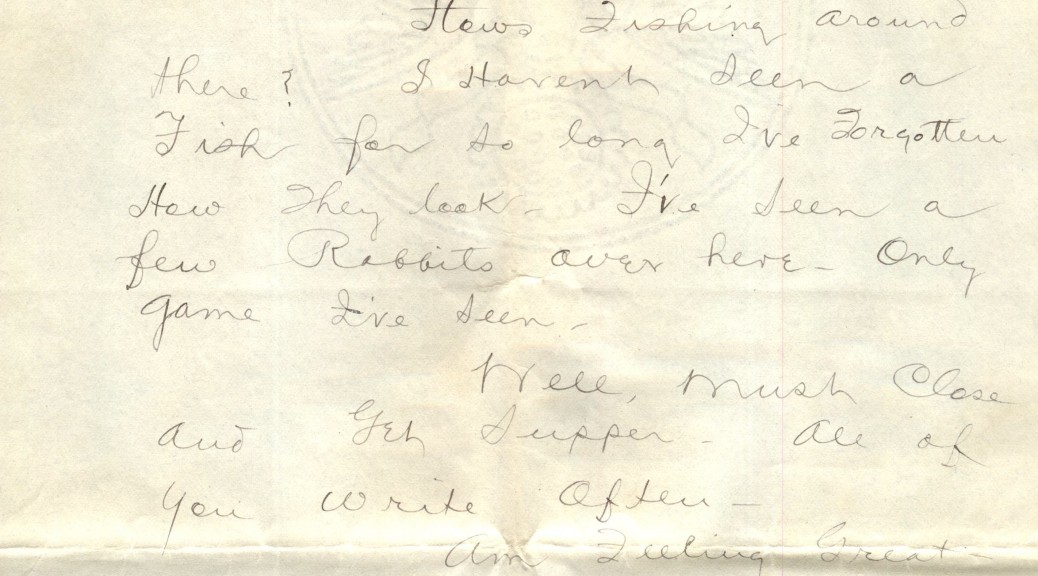 Hows Fishing around
there? I Havent Seen a
Fish for so long I've Forgotten
How They look - I've Seen a
few Rabbits over here - Only
game I've Seen -
Well, Must Close
And Get Supper - All of
You write Often -
Am Feeling Great -